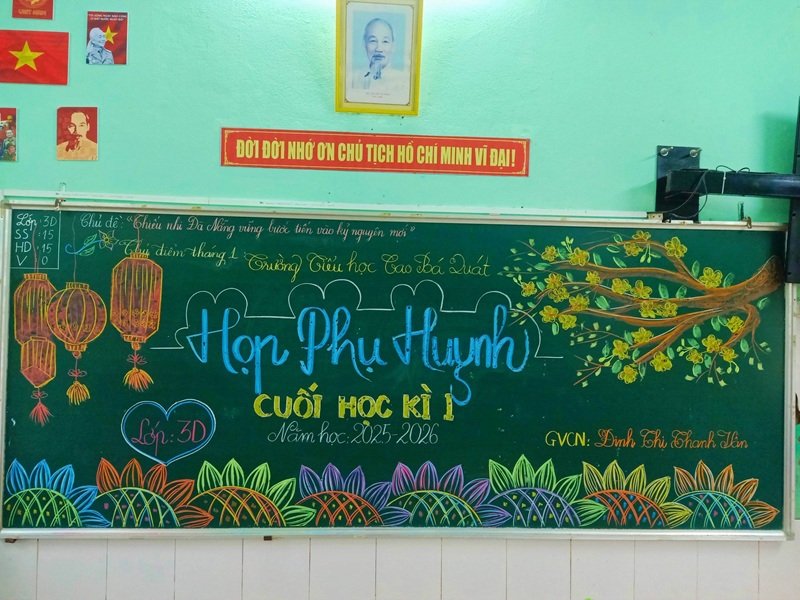 ĐỜI ĐỜI NHỚ ƠN CHỦ TỊCH HỒ CHÍ MINH VĨ ĐẠI!
Lớp: 3D
SS: 15
HD: 15
V: 0
Chủ đề: "Thiếu nhi Đà Nẵng vững bước tiến vào kỷ nguyên mới"
Chủ điểm tháng 1:
Trường Tiểu học Cao Bá Quát
Họp Phụ Huynh
CUỐI HỌC KÌ 1
Năm học: 2025-2026
Lớp: 3D
GVCN: Đinh Thị Thanh Vân